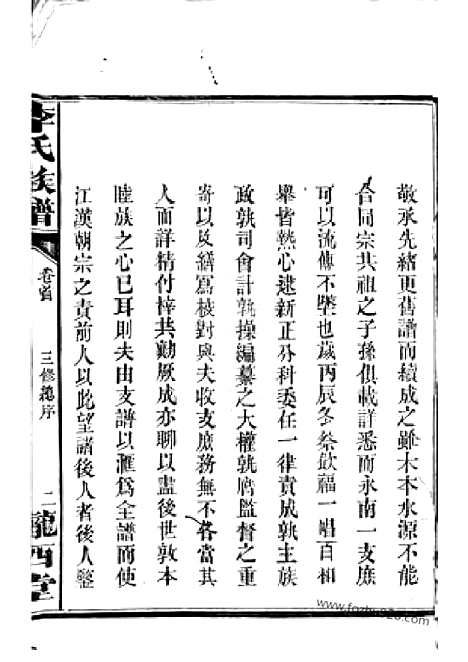 敬承先緒更舊譜而續成之雖木本水源不能
合同宗共祖之子孫俱載詳悉而永南一支庶
可以流傳不墜也歲丙辰冬祭飲福一唱百相
舉皆熱心逮新正分科委任一律責成孰主族
政孰司會計孰操編纂之大權孰膺監督之重
寄以及繕寫校對與夫收支庶務無不各當其
人而詳精付梓共勤厥成亦聊以盡後世敦本
睦族之心已耳則夫由支譜以滙為全譜而使
江漢朝宗之責前人以此望諸後人者後人鑒
李氏族譜
卷首
三修總序
二
隴西堂